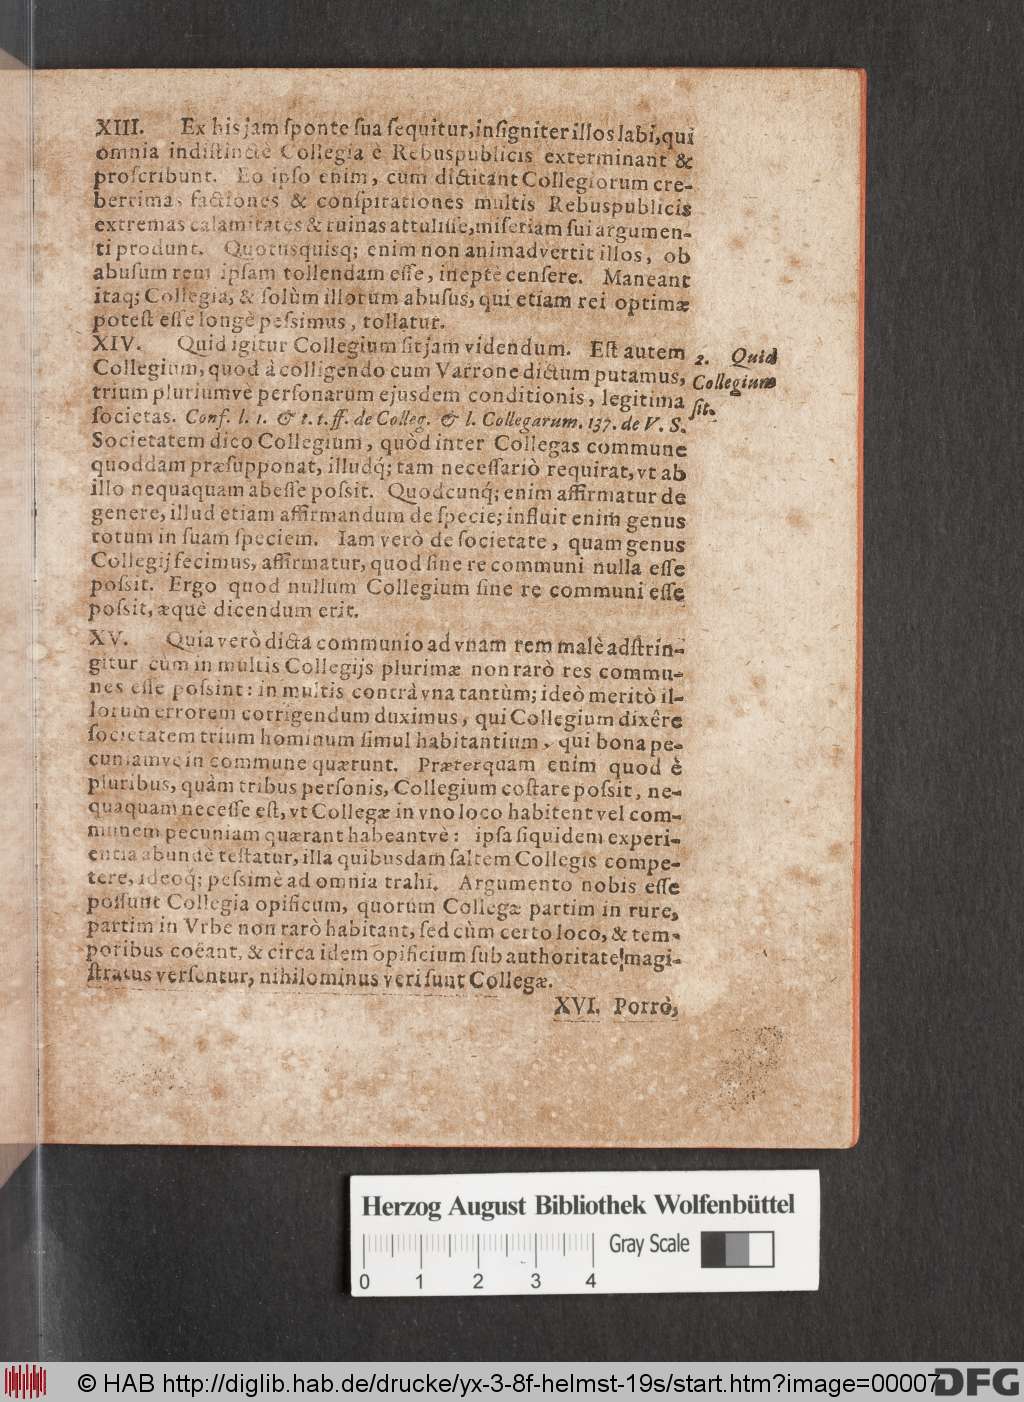 XIII. Ex his jam ſponte ſua ſequitur, inſigniter illos labi, qui
omnia indiſtinctè Collegia è Rebuspublicis exterminant &
proſcribunt. Eo ipſo enim, cum dictitant Collegiorum cre-
berrimas factiones & conſpirationes multis Rebuspublicis
extremas calamitates & ruinas attuliſſe, miſeriam ſui argumen-
ti produnt. Quotusquisq; enim non animadvertit illos, ob
abuſum rem ipſam tollendam eſſe, ineptè cenſere. Maneant
itaq; Collegia, & ſolùm illorum abuſus, qui etiam rei optimæ
poteſt eſſe longè peſsimus, tollatur.
XIV. Quid igitur Collegium ſit jam videndum. Eſt autem
Collegium, quod à colligendo cum Varrone dictum putamus,
trium pluriumvè perſonarum ejusdem conditionis, legitima
ſocietas. Conf. l. 1. & t. t. ff. de Colleg. & l. Collegarum. 137. de V. S.
Societatem dico Collegium, quòd inter Collegas commune
quoddam præſupponat, illudq́; tam neceſſariò requirat, vt ab
illo nequaquam abeſſe poſsit. Quodcunq́; enim affirmatur de
genere, illud etiam affirmandum de ſpecie; influit enim genus
totum in ſuam ſpeciem. Iam verò de ſocietate, quam genus
Collegij fecimus, affirmatur, quod ſine re communi nulla eſſe
poſsit. Ergo quod nullum Collegium ſine re communi eſſe
poſsit, æquè dicendum erit.
2. Quid
Collegium
ſit.
XV. Quia verò dicta communio ad vnam rem malè adſtrin-
gitur cùm in multis Collegijs plurimæ non rarò res commu-
nes eſſe poſsint: in multis contrà vna tantùm; ideò meritò il-
lorum errorem corrigendum duximus, qui Collegium dixêre
ſocietatem trium hominum ſimul habitantium, qui bona pe-
cuniamve in commune quærunt. Præterquam enim quod è
pluribus, quàm tribus perſonis, Collegium coſtare poſsit, ne-
quaquam neceſſe eſt, vt Collegæ in vno loco habitent vel com-
munem pecuniam quærant habeantvè: ipſa ſiquidem experi-
entia abundè teſtatur, illa quibusdam ſaltem Collegis compe-
tere, ideoq́; peſsimè ad omnia trahi. Argumento nobis eſſe
poſſunt Collegia opificum, quorum Collegæ partim in rure,
partim in Vrbe non rarò habitant, ſed cùm certo loco, & tem-
poribus coëant, & circa idem opificium ſub authoritate magi-
ſtratus verſentur, nihilominus veri ſunt Collegæ.
XVI. Porrò,
Herzog August Bibliothek Wolfenbüttel
Gray Scale
0 1 2 3 4
© HAB http://diglib.hab.de/drucke/yx-3-8f-helmst-19s/start.htm?image=00007
DFG